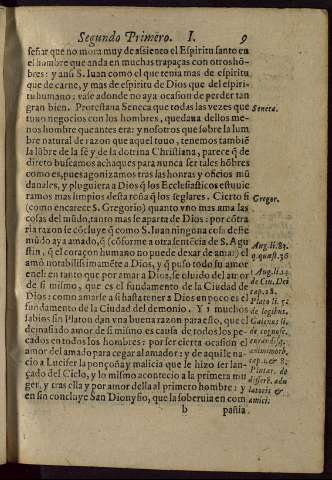 Segundo Primero. I. 9
señar que no mora muy de assiento el Espiritu santo en
el hombre que anda en muchas trapaças con otros hō-
bres: y ansi S. Iuan como el que tenia mas de espiritu
que de carne, y mas de espiritu de Dios que del espiri-
tu humano: vase adonde no aya ocasion de perder tan
gran bien. Protestaua Seneca que todas las vezes que
tuuo negocios con los hombres, quedaua dellos me-
nos hombre que antes era: y nosotros que sobre la lum
bre natural de razon que aquel tuuo, tenemos tambiē
la lūbre de la fè y de la dotrina Christiana, parece q̄ de
direto buscamos achaques para nunca ser tales hōbres
como es, pues agonizamos tras las honras y oficios mū
danales, y pluguiera a Dios q̄ los Ecclesiasticos estuuie
ramos mas limpios desta roña q̄ los seglares. Cierto si
(como encarece S. Gregorio) quanto vno mas ama las
cosas del mūdo, tanto mas se aparta de Dios: por cōtra
ria razon se cōcluye q̄ como S. Iuan ninguna cosa deste
mūdo aya amado, q̄ (cōforme a otra sentēcia de S. Agu
stin, q̄ el coraçon humano no puede dexar de amar) el
amò notabilissimamēte a Dios, y q̄ puso todo su amor
enel: en tanto que por amar a Dios, se oluido del amor
de si mismo, que es el fundamento de la Ciudad de
Dios: como amarse a si hasta tener a Dios en poco es el
fundamento de la Ciudad del demonio. Y si muchos
sabios sin Platon dan vna buena razon para esto, que el
demasiado amor de si mismo es causa de todos los pe-
cados en todos los hombres: por ser cierta ocasion el
amor del amado para cegar al amador: y de aqui le na-
cio a Lucifer la ponçoña y malicia que le hizo ser lan-
çado del Cielo, y lo mismo acontecio a la primera mu
ger, y tras ella y por amor della al primero hombre: y
en fin concluye San Dionysio, que la soberuia en com
b pañia
Seneca.
Gregor.
Aug. li. 83.
q. quæst. 36
Aug. li. 14.
de Ciu. Dei
cap. 28.
Plato li. 5.
de legibus.
Galenus li.
de cognos.
curandisq́.
animi morb.
cap. 2. & 8.
Plutar. de
discrib. adu
latoris &
amici.